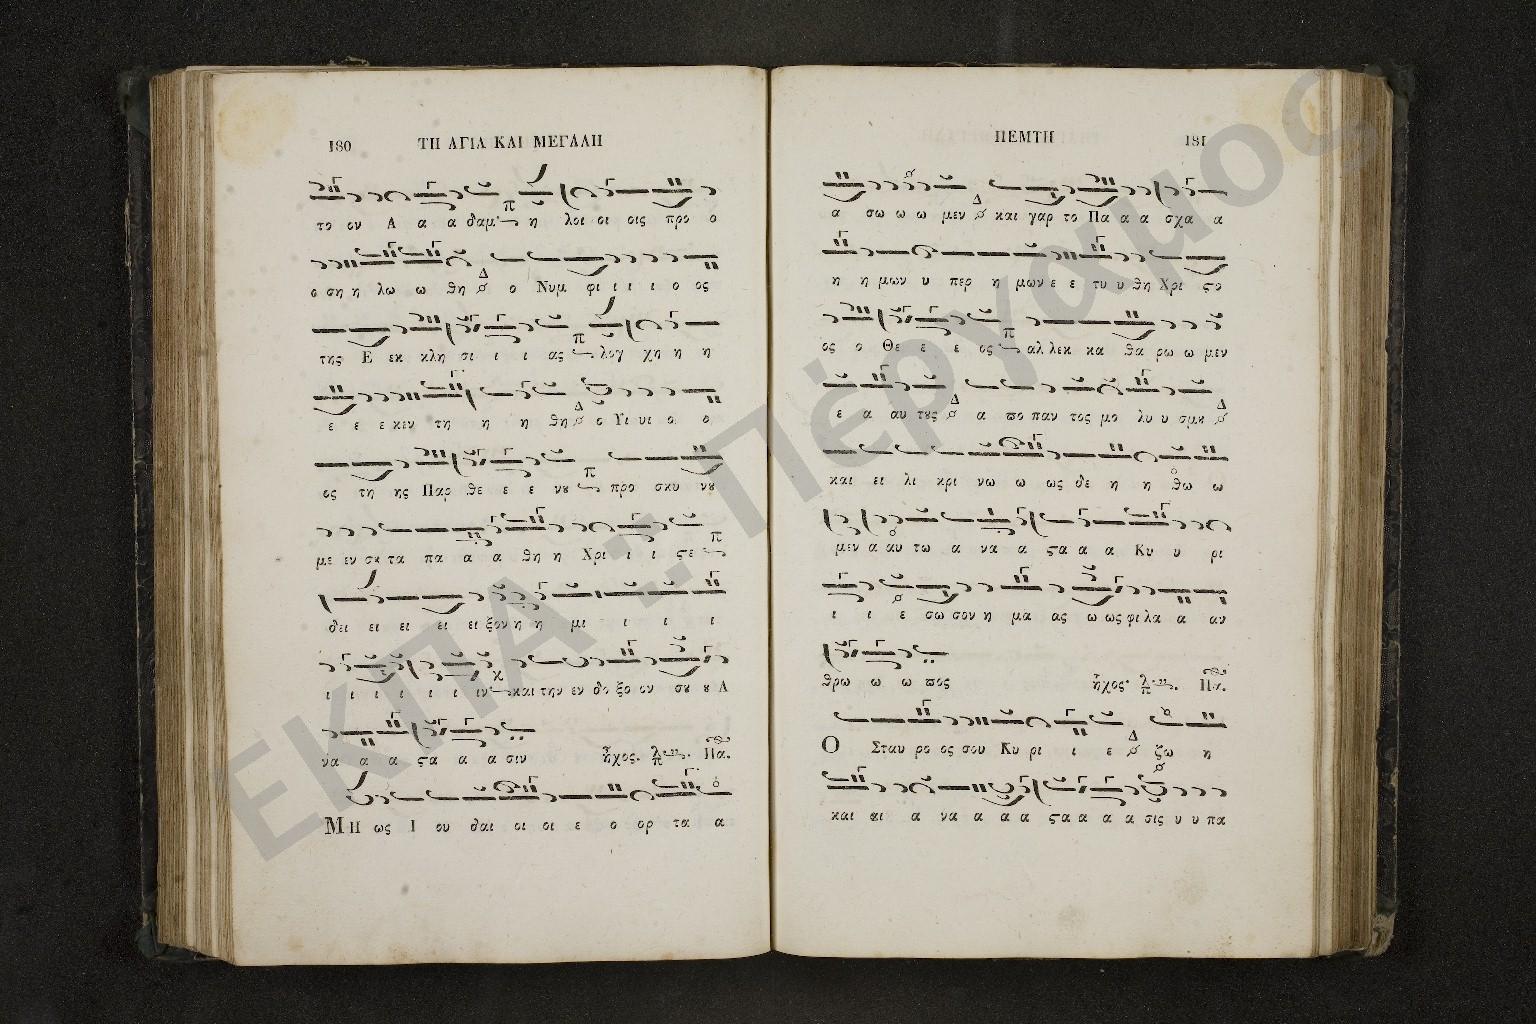 180 ΤΗ ΑΓΙΑ ΚΑΙ ΜΕΓΑΛΗ
το ον Α α α δαμ· η λοι οι οις προ ο
ο ση η λω ω θη Δ ο Νυμ φι ι ι ι ο ος
της Ε εκ κλη σι ι ι ας π λογ χη η η
ε ε ε κεν τη η η θη Δ ο Υι υι ο ο
ος τη ης Παρ θε ε ε νȣ π προ σκυ νȣ
με εν σȣ τα πα α α θη η Χρι ι ι ςε π
δει ει ει ει ει ξον η η μι ι ι ι
ι ι ι ι ι ι ιν κ και την εν δο ξο ον σȣ ȣ Α
να α α ςα α α σιν ἦχος. λ π Πα.
ΜΗ ως Ι ου δαι οι οι ε ο ορ τα α
ΠΕΜΤΗ 181
α σω ω ω μεν Δ και γαρ το Πα α α σχα α
η η μων υ περ η μων ε ε τυ υ θη Χρι ςο
ος ο Θε ε ε ος π αλ λεκ κα θα ρω ω μεν
ε α αυ τȣς Δ α πο παν τος μο λυ υ σμȣ Δ
και ει λι κρι νω ω ως δε η η θω ω
μεν α αυ τω α να α ςα α α Κυ υ ρι
ι ι ε σω σον η μα ας ω ως φι λα α αν
θρω ω ω πος ἦχος· λ π Πα.
Ο Σταυ ρο ος σου Κυ ρι ι ε Δ ζω η
και αι α να α α α ςα α α α σις υ υ πα
ΕΚΠΑ :: Πέργαμος